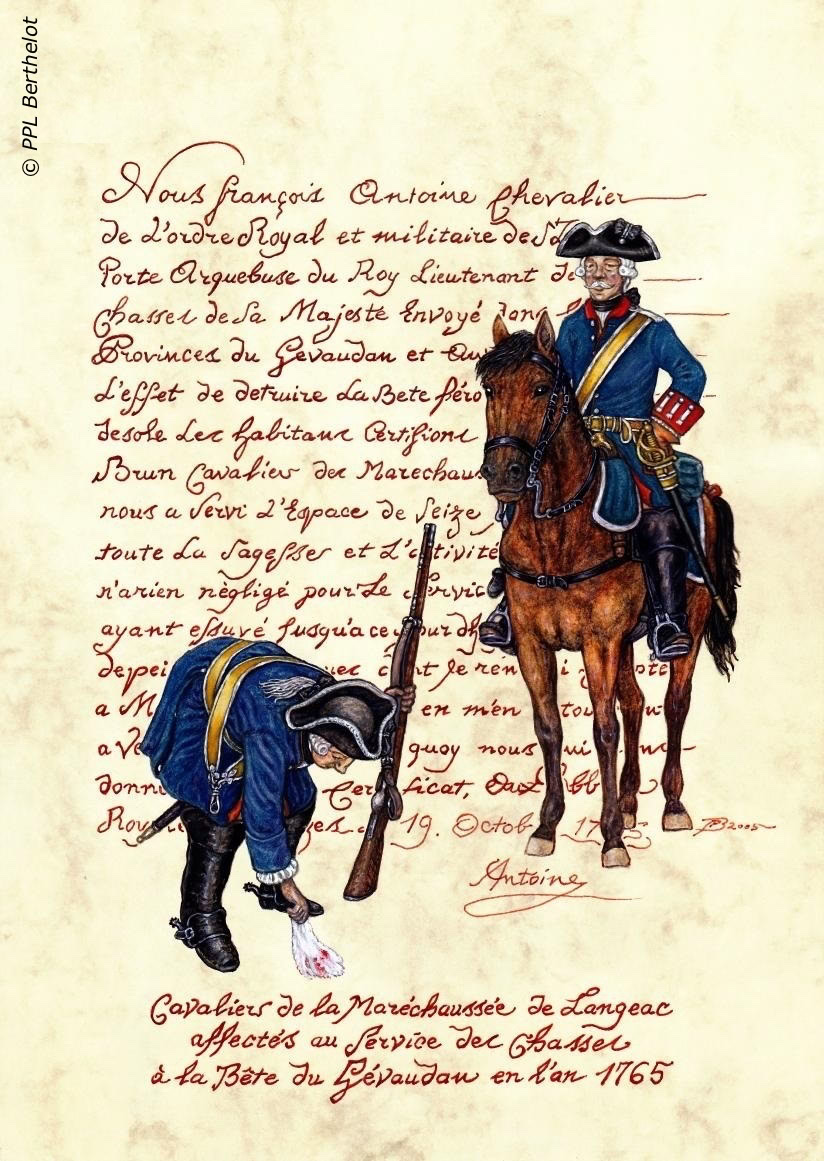 © PPL Berthelot
Nous françois Antoine Chevalier
de L'ordre Royal et militaire de
Porte Arquebuse du Roy Lieutenant de
Chasses de Sa Majesté Envoyé dans
Provinces du Gévaudan et
L'effet de detruire La Bete féro
desole Les habitans Certifions
Brun Cavalier des Marechaus
nous a Servi L'Espace de Seize
toute La Sagesse et L'activité
n'arien négligé pour Le Servic
ayant essuyé Jusqu'a ce jour
depei
a M en m'en
a quoy nous
donn Certificat,
19. Octob
PB 2005
Antoine
Cavaliers de la Maréchaussée de Langeac
affectés au Service des Chasses
à la Bête du Gévaudan en l'an 1765